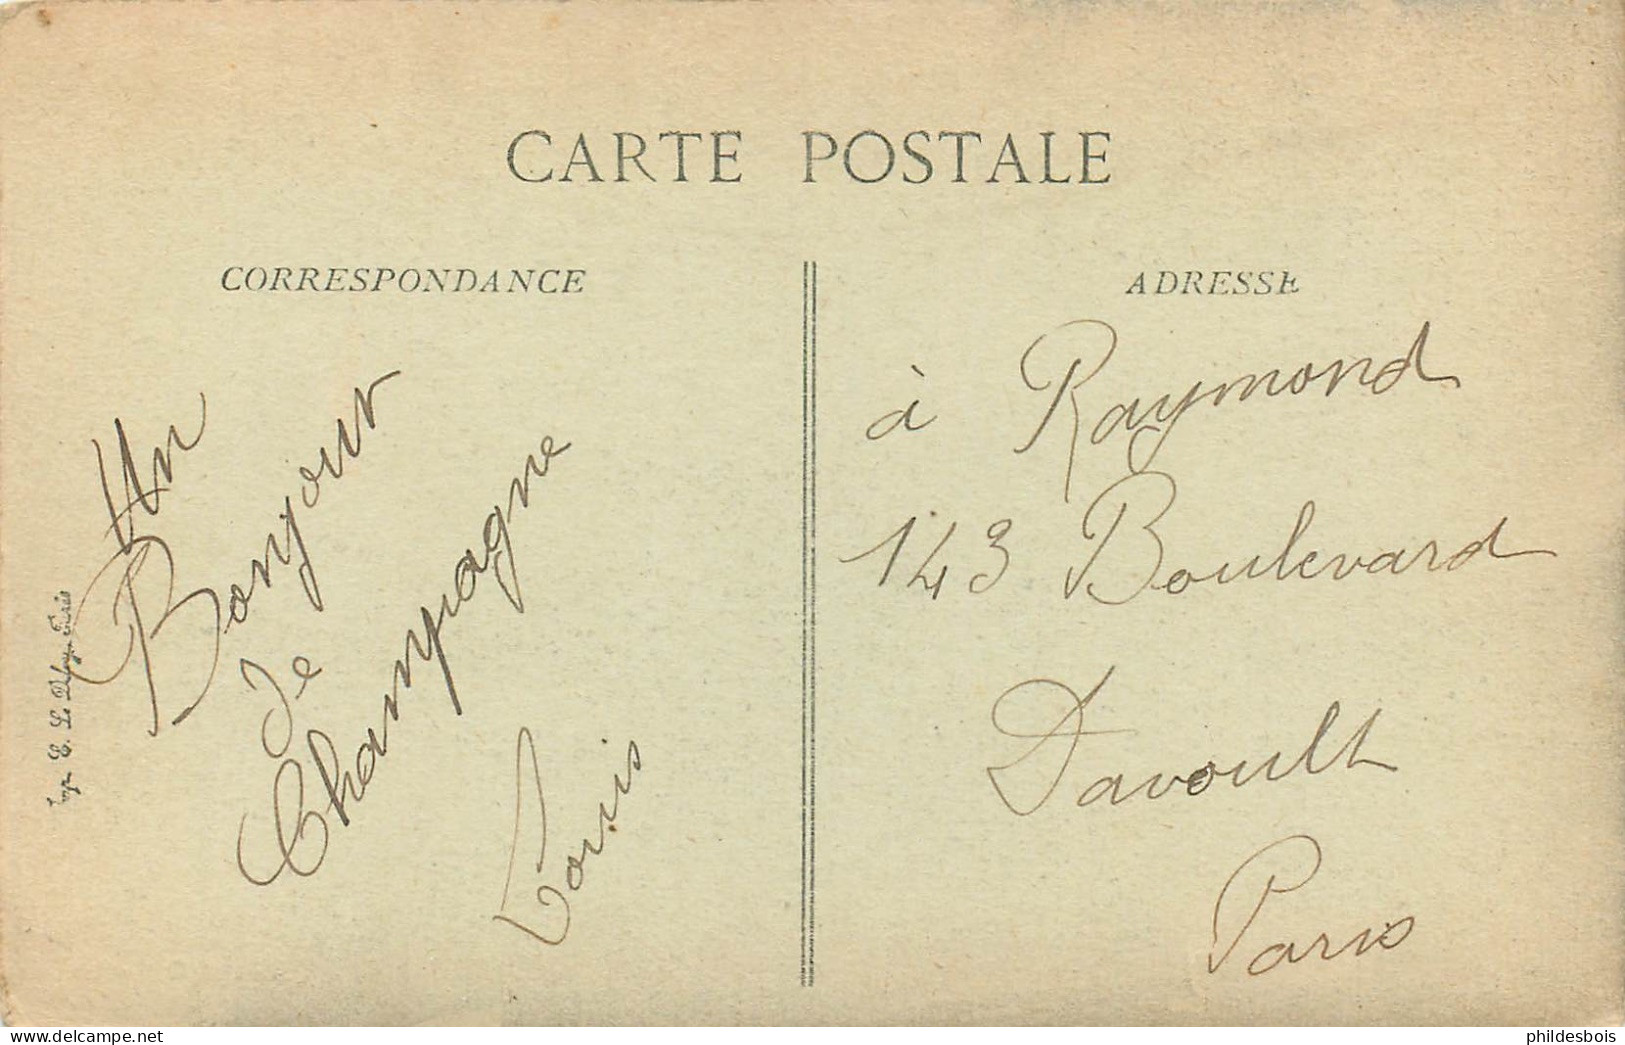 CARTE POSTALE
CORRESPONDANCE
Un
Bonjour
de
Champagne
Louis
Imp. E. Le Deley, Paris
ADRESSE
à Raymond
143 Boulevard
Davoult
Paris
phildesbois